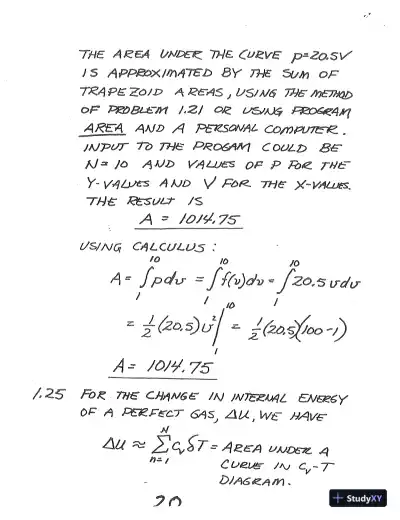 THE AREA UNDER THE CURVE p=20.5V
IS APPROXIMATED BY THE SUM OF
TRAPEZOID AREAS, USING THE METHOD
OF PROBLEM 1.21 OR USING PROGRAM
AREA AND A PERSONAL COMPUTER.
INPUT TO THE PROGAM COULD BE
N = 10 AND VALUES OF P FOR THE
Y-VALUES AND V FOR THE X-VALUES.
THE RESULT IS
A = 1014.75
USING CALCULUS :
A = ∫₁¹⁰ pdv = ∫₁¹⁰ f(v)dv = ∫₁¹⁰ 20.5 vdv
= 1/2 (20.5) v² |₁¹⁰ = 1/2 (20.5)(100-1)
A = 1014.75
1.25 FOR THE CHANGE IN INTERNAL ENERGY
OF A PERFECT GAS, ΔU, WE HAVE
ΔU ≈ Σₙ₌₁ᴺ Cᵥ δT = AREA UNDER A
CURVE IN Cᵥ-T
DIAGRAM.
20
StudyXY